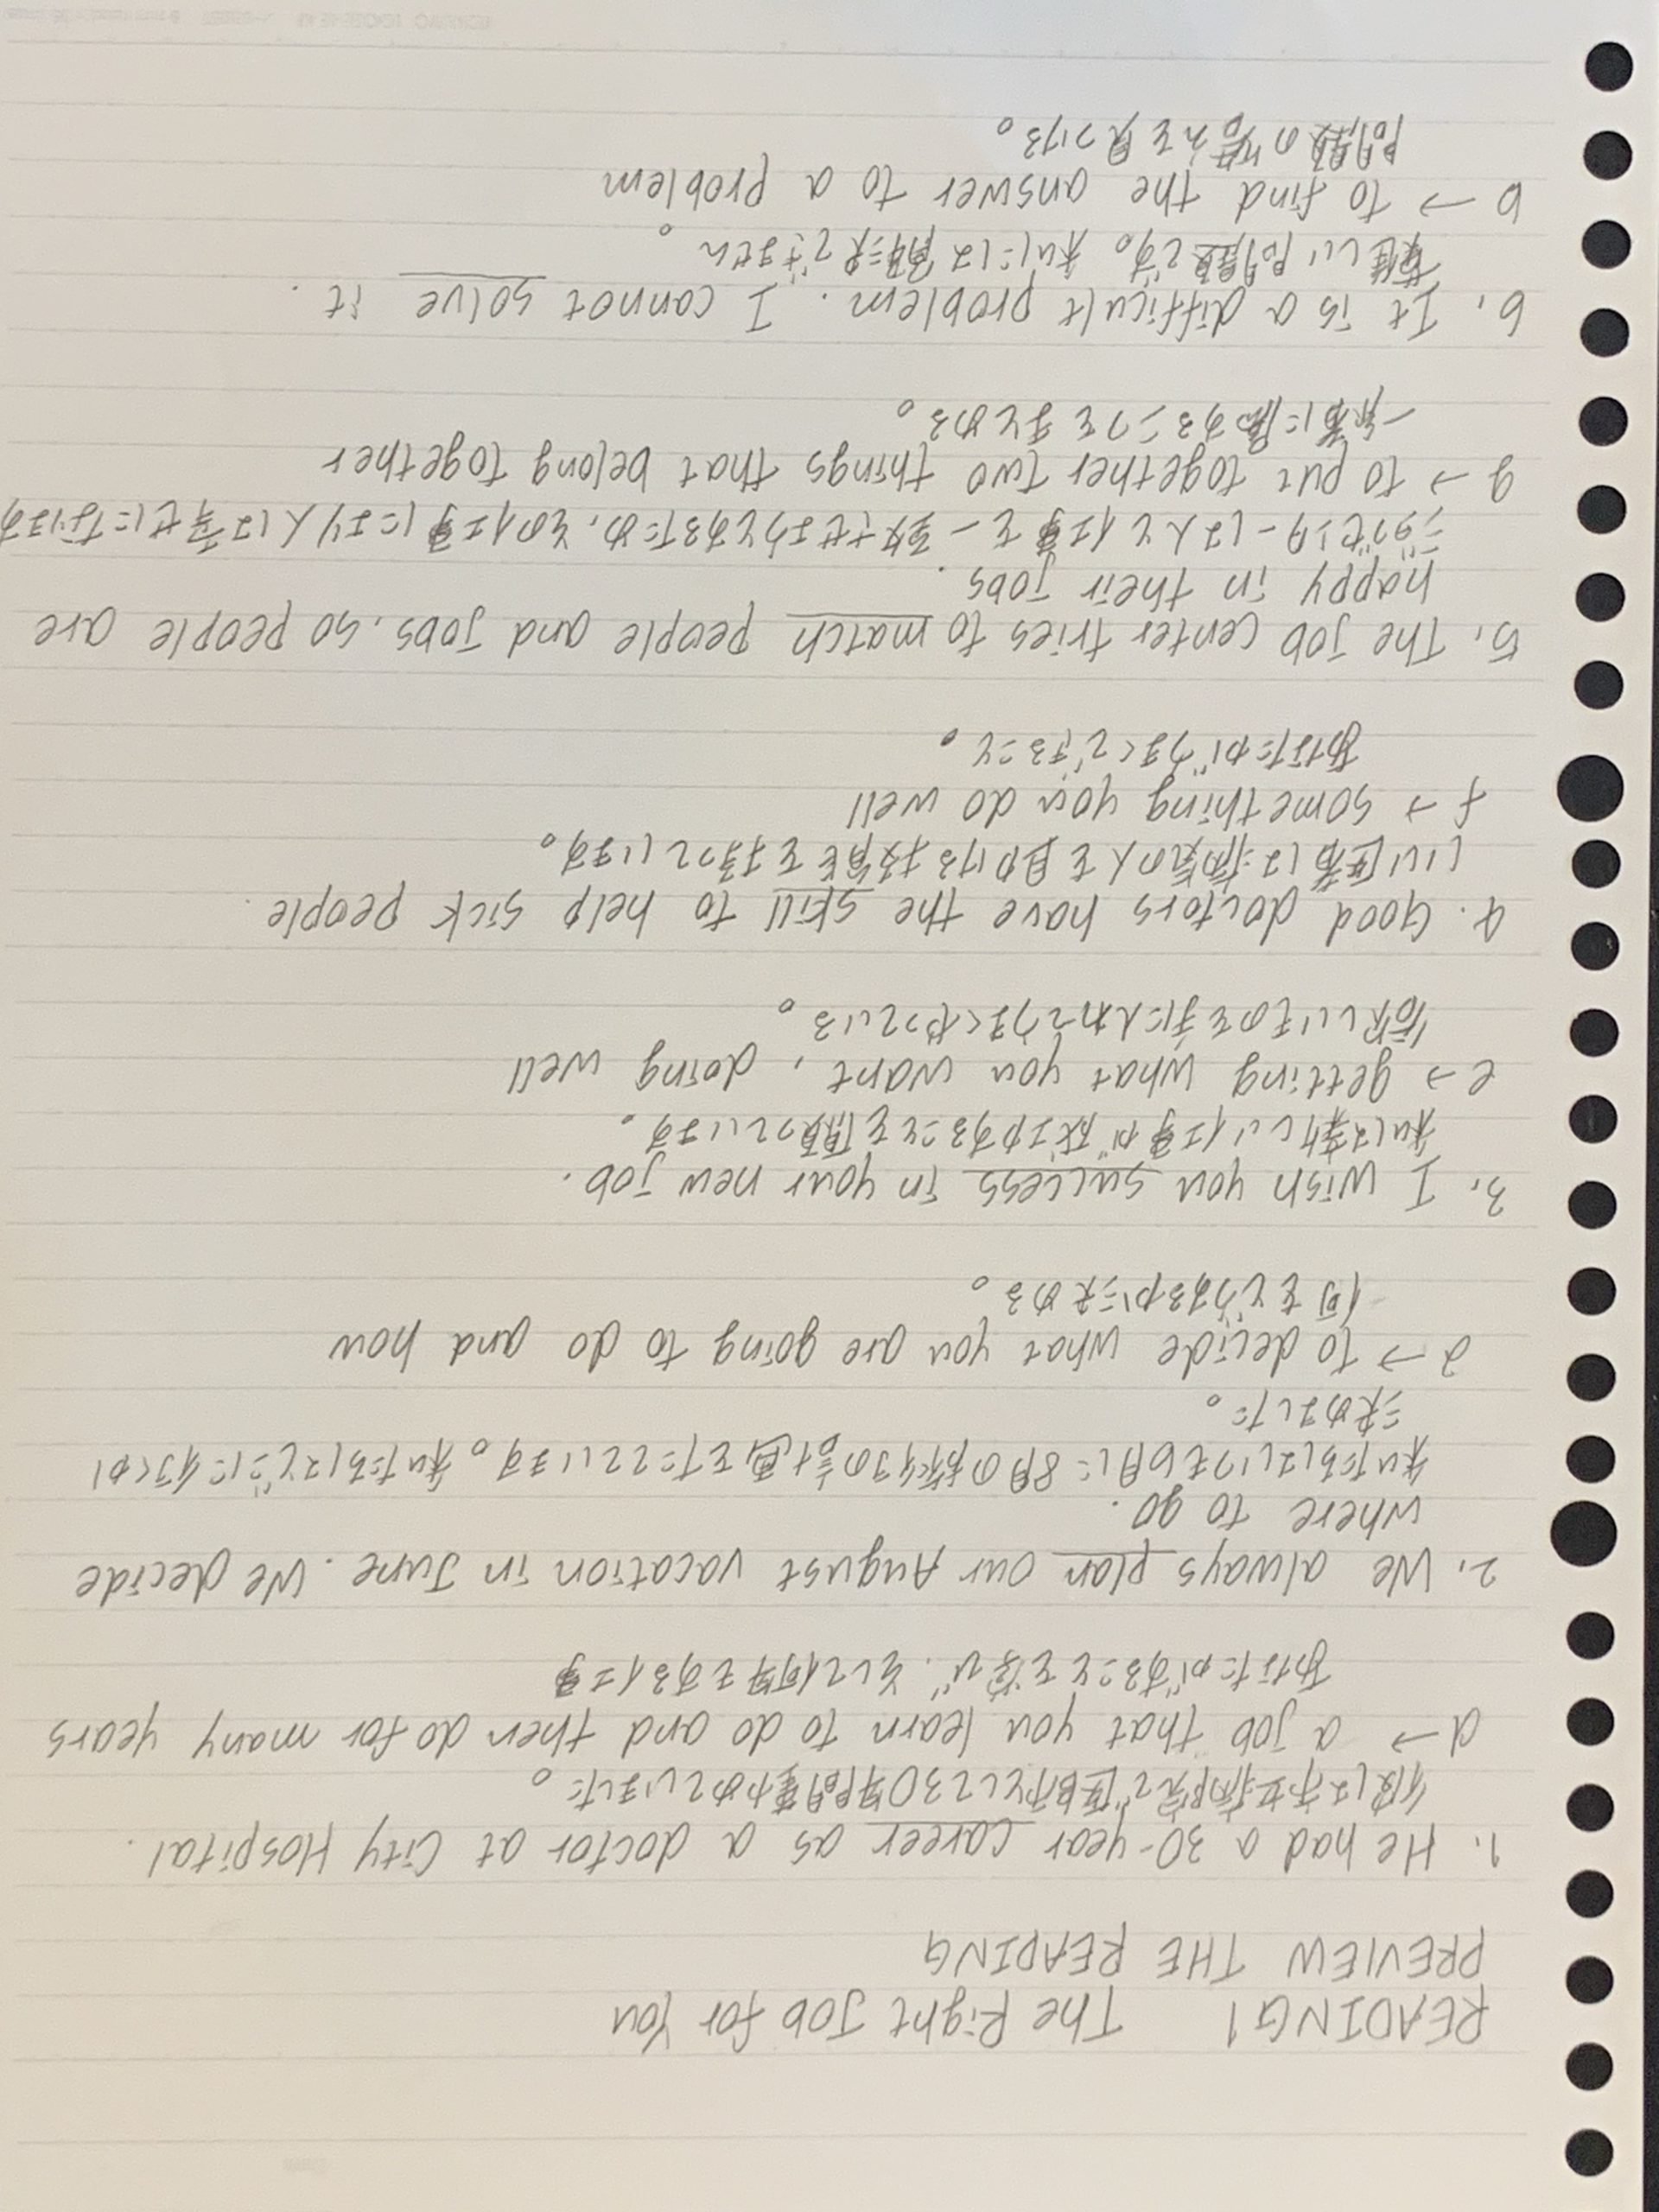 READING1 The Right Job for You
PREVIEW THE READING
1. He had a 30-year career as a doctor at City Hospital.
彼は市立病院で医師として30年間働いていました。
d → a job that you learn to do and then do for many years
あなたがすることを学び、そして何年もする仕事
2. We always plan our August vacation in June. We decide
where to go.
私たちはいつも6月に8月の旅行の計画をたてています。私たちはどこに行くか
決めました。
a → to decide what you are going to do and how
何をどうするか決める。
3. I wish you success in your new job.
私は新しい仕事が成功することを願っています。
e → getting what you want, doing well
欲しいものを手に入れてうまくやっている。
4. Good doctors have the skill to help sick people.
いい医者は病気の人を助ける技能を持っています。
f → something you do well
あなたがうまくできること。
5. The job center tries to match people and jobs, so people are
happy in their jobs.
ジョブセンターは人と仕事を一致させようとするため、その仕事により人は幸せになります
g → to put together two things that belong together
一緒に属する二つをまとめる。
6. It is a difficult problem. I cannot solve it.
難しい問題です。私には解決できません。
b → to find the answer to a problem
問題の答えを見つける。